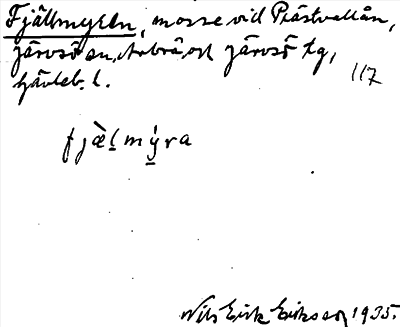 Fjällmyren, mosse vid Prästvallån,
Järvsö sn, Arbrå och Järvsö tg,
Gävleb. l.
117
fjæ̀l̠mýra
Nils Erik Eriksson 1935.